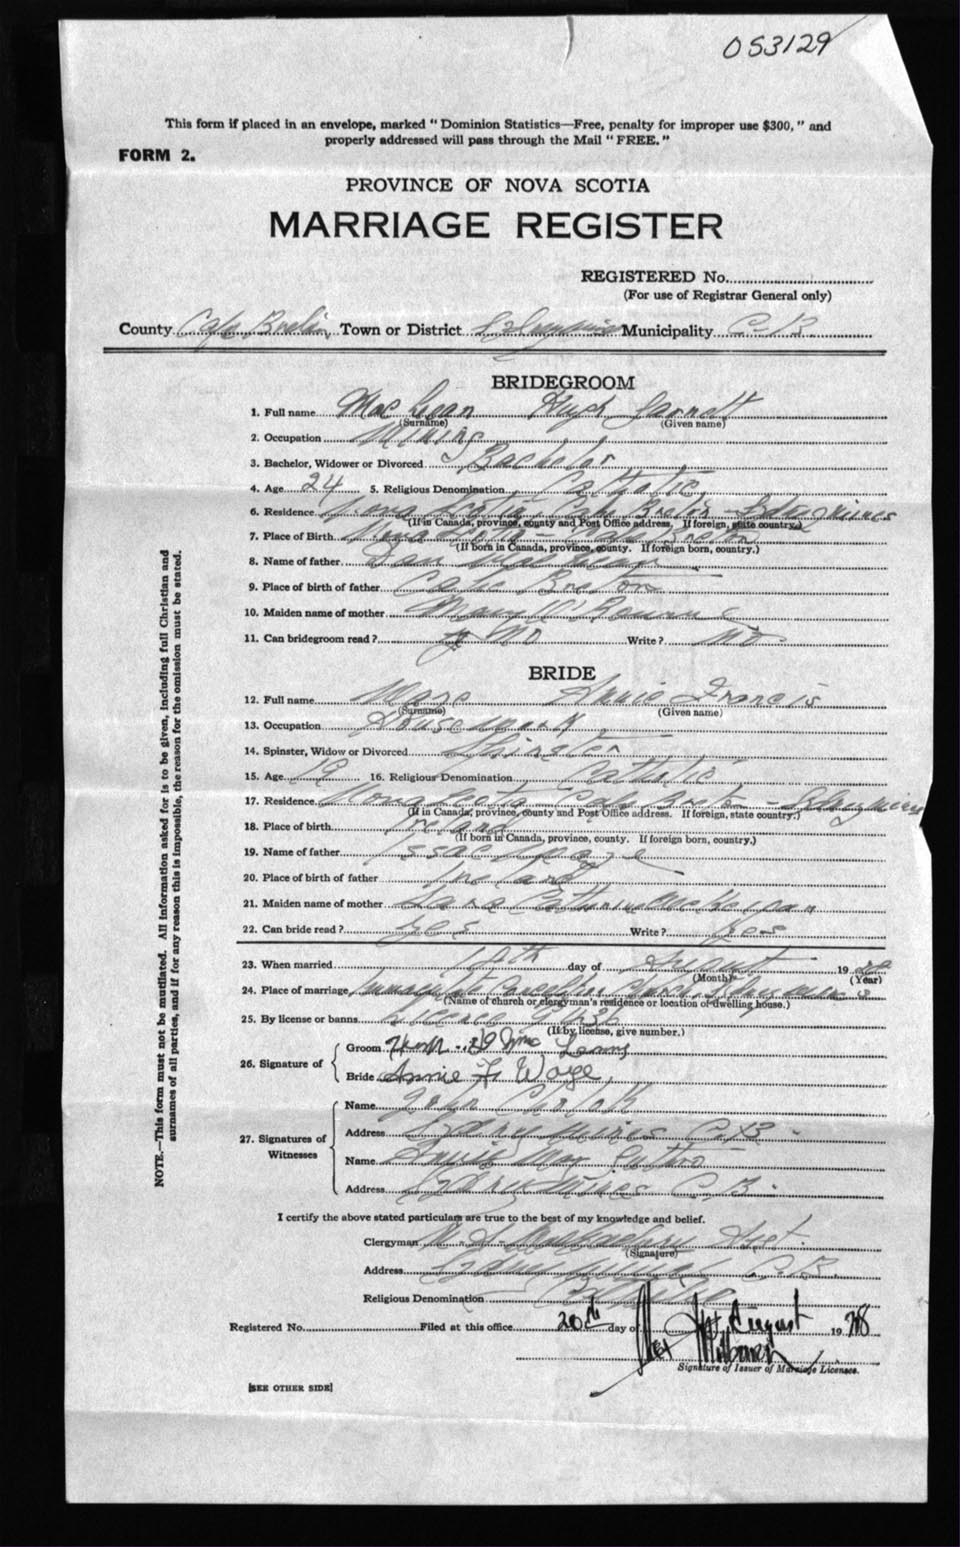 053129
This form if placed in an envelope, marked " Dominion Statistics—Free, penalty for improper use $300, " and
properly addressed will pass through the Mail " FREE. "
FORM 2.
PROVINCE OF NOVA SCOTIA
MARRIAGE REGISTER
REGISTERED No.
(For use of Registrar General only)
County Cape Breton Town or District Municipality C-B.
BRIDEGROOM
1. Full name Mac Lean Hugh
(Surname) (Given name)
2. Occupation Mining
3. Bachelor, Widower or Divorced Bachelor
4. Age 24 5. Religious Denomination Catholic
6. Residence Nova Scotia Cape Breton - Sdny mines
(If in Canada, province, county and Post Office address. If foreign, state country.)
7. Place of Birth Nova Scotia - Cape Breton
(If born in Canada, province, county. If foreign born, country.)
8. Name of father Dan Mac Lean
9. Place of birth of father Cape Breton
10. Maiden name of mother Mary
11. Can bridegroom read ? No Write ? No
BRIDE
12. Full name Annie Francis
(Surname) (Given name)
13. Occupation Housework
14. Spinster, Widow or Divorced Spinster
15. Age 19 16. Religious Denomination Catholic
17. Residence Nova Scotia Cape Breton - Sdny mines
(If in Canada, province, county and Post Office address. If foreign, state country.)
18. Place of birth Ireland
(If born in Canada, province, county. If foreign born, country.)
19. Name of father Issac
20. Place of birth of father Ireland
21. Maiden name of mother
22. Can bride read ? Yes Write ? Yes
23. When married day of August 19
(Month) (Year)
24. Place of marriage Church
(Name of church or clergyman's residence or location of dwelling house.)
25. By license or banns License
(If by license, give number.)
26. Signature of
Groom
Bride Annie F. Waye
27. Signatures of
Witnesses
Name John
Address Sydney Mines C.B.
Name Annie May
Address Sydney Mines C.B.
I certify the above stated particulars are true to the best of my knowledge and belief.
Clergyman
(Signature)
Address Sydney Mines C.B.
Religious Denomination Catholic
Registered No. Filed at this office 20th day of August 19 28
Signature of Issuer of Marriage Licenses.
[SEE OTHER SIDE]
NOTE.—This form must not be mutilated. All information asked for is to be given, including full Christian and
surnames of all parties, and if for any reason this is impossible, the reason for the omission must be stated.